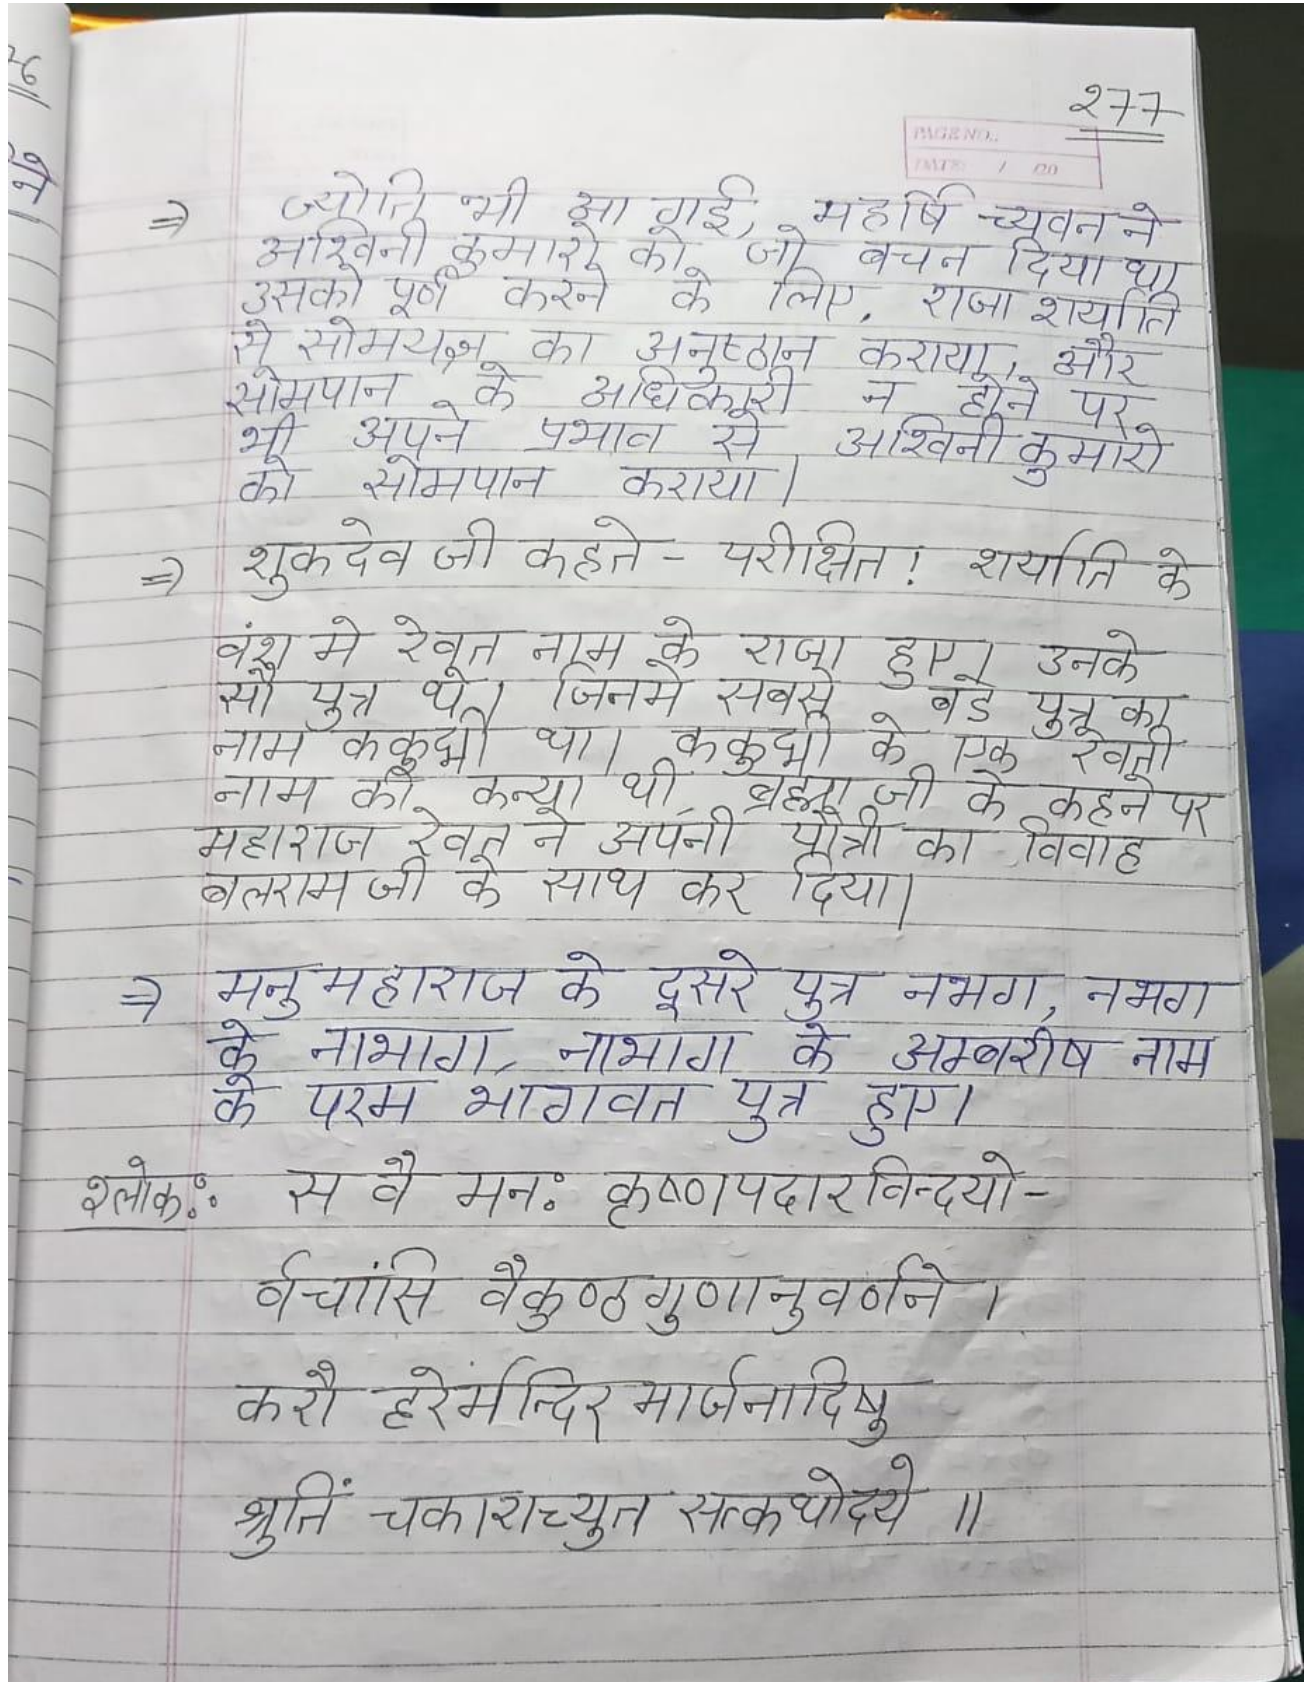 २77
PAGE NO.:
DATE: / /20
⇒ ज्योति भी आ गई, महर्षि च्यवन ने
अश्विनी कुमारो को जो बचन दिया था
उसको पूर्ण करने के लिए, राजा शर्याति
से सोमयज्ञ का अनुष्ठान कराया, और
सोमपान के अधिकारी न होने पर
भी अपने प्रभाव से अश्विनी कुमारो
को सोमपान कराया।
⇒ शुकदेव जी कहते - परीक्षित! शर्याति के
वंश मे रेवत नाम के राजा हुए। उनके
सौ पुत्र थे। जिनमे सबसे बडे पुत्र का
नाम ककुद्मी था। ककुद्मी के एक रेवती
नाम की कन्या थी, ब्रह्मा जी के कहने पर
महाराज रेवत ने अपनी पौत्री का विवाह
बलराम जी के साथ कर दिया।
⇒ मनु महाराज के दूसरे पुत्र नभग, नभग
के नाभाग, नाभाग के अम्बरीष नाम
के परम भागवत पुत्र हुए।
श्लोकः: स वै मनः कृष्णपदारविन्दयो-
र्वचांसि वैकुण्ठगुणानुवर्णने ।
करौ हरेर्मन्दिर मार्जनादिषु
श्रुतिं चकाराच्युत सत्कथोदये ॥